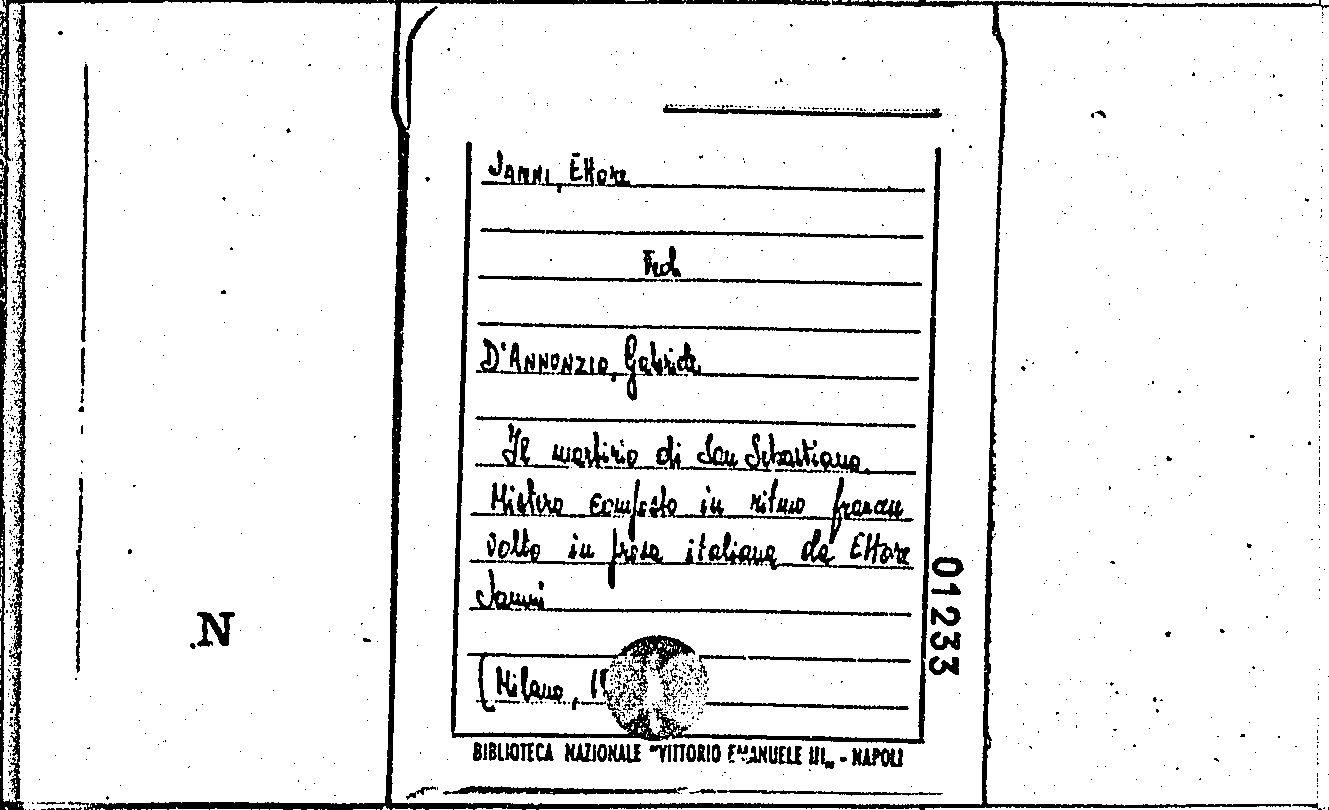 JANNI, Ettore
Ved.
D'ANNUNZIO, Gabriele
Il martirio di San Sebastiano.
Mistero composto in ritmo francese
volto in prosa italiana da Ettore
Janni
(Milano,
N
01233
BIBLIOTECA NAZIONALE "VITTORIO EMANUELE III„ - NAPOLI